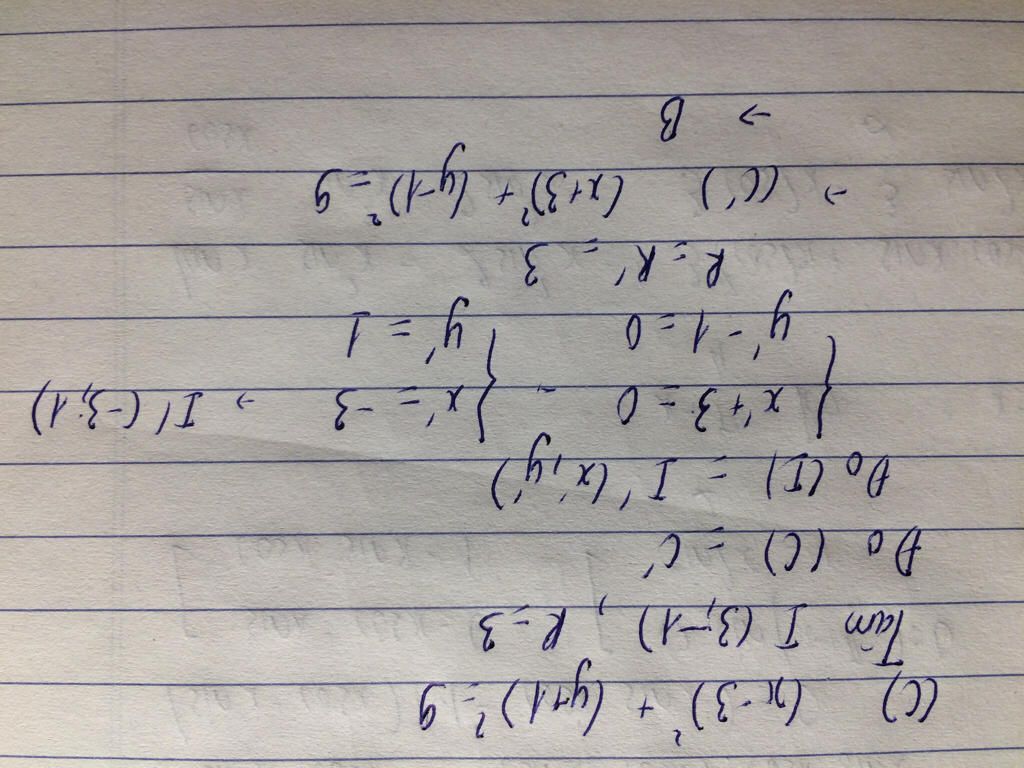 (C) (x-3)² + (y+1)² = 9
Tâm I (3,-1), R = 3
Đo (C) = C'
Đo (I) = I' (x', y')
{ x'+3 = 0 ~ { x' = -3 → I' (-3; 1)
y' - 1 = 0 y' = 1
R = R' = 3
→ (C') (x+3)² + (y-1)² = 9
→ B